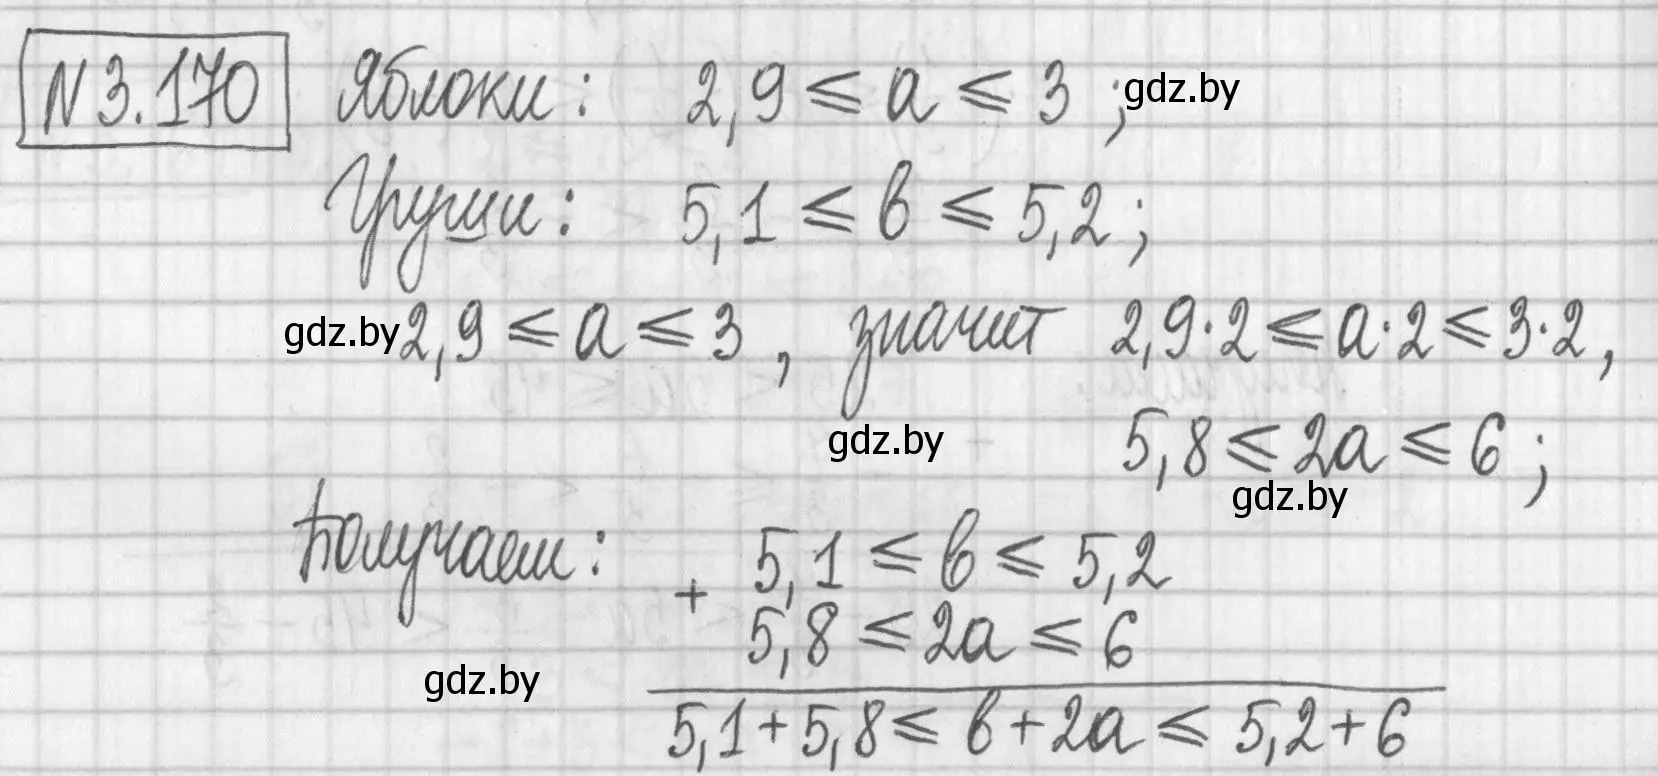 N 3.170 Яблоки: 2,9 ≤ a ≤ 3 ; gdz.by
Груши: 5,1 ≤ b ≤ 5,2 ;
gdz.by 2,9 ≤ a ≤ 3 , значит 2,9·2 ≤ a·2 ≤ 3·2 ,
gdz.by 5,8 ≤ 2a ≤ 6 ;
gdz.by
Получаем: + 5,1 ≤ b ≤ 5,2
5,8 ≤ 2a ≤ 6
gdz.by
5,1+5,8 ≤ b+2a ≤ 5,2+6